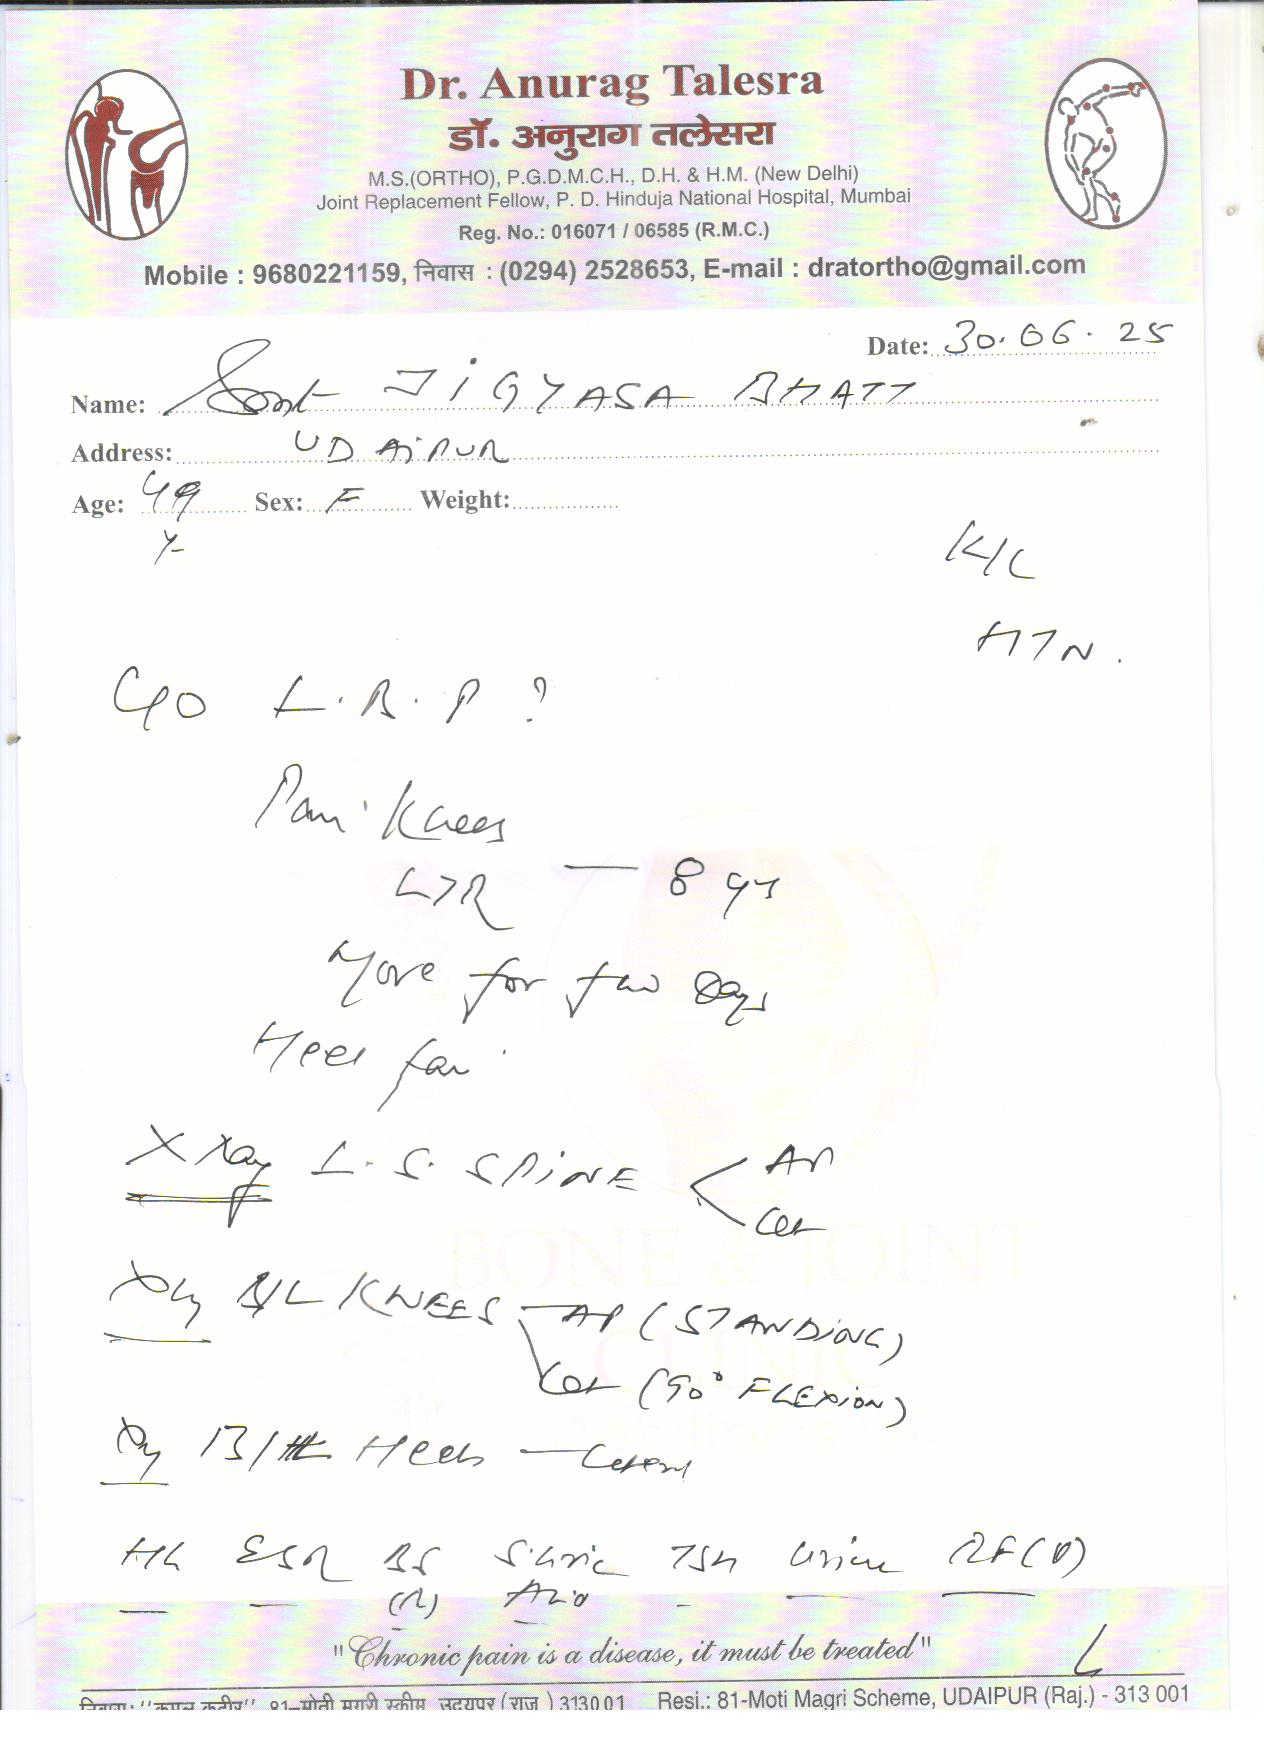 Dr. Anurag Talesra
डॉ. अनुराग तलेसरा
M.S.(ORTHO), P.G.D.M.C.H., D.H. & H.M. (New Delhi)
Joint Replacement Fellow, P. D. Hinduja National Hospital, Mumbai
Reg. No.: 016071 / 06585 (R.M.C.)
Mobile : 9680221159, निवास : (0294) 2528653, E-mail : dratortho@gmail.com
Date: 30.06.25
Name: Smt JIGYASA BHATT
Address: UDAIPUR
Age: 49 Sex: F Weight:
Y
K/C
HTN.
C/O L.B.P ?
Pain Knees
L>R — 8 yrs
More for few Days
Heel Pain
X Ray L.S. SPINE AP
Lat
Xray B/L KNEES AP (STANDING)
Lat (90° FLEXION)
Xy B/L Heels — Lateral
Hb ESR BS S.Uric TSH Urine RF(Q)
(R) Acid
BONE & JOINT
CLINIC
"Chronic pain is a disease, it must be treated"
निवास: "कमल कुटीर" 81-मोती मगरी स्कीम, उदयपुर (राज.) 313001 Resi.: 81-Moti Magri Scheme, UDAIPUR (Raj.) - 313 001